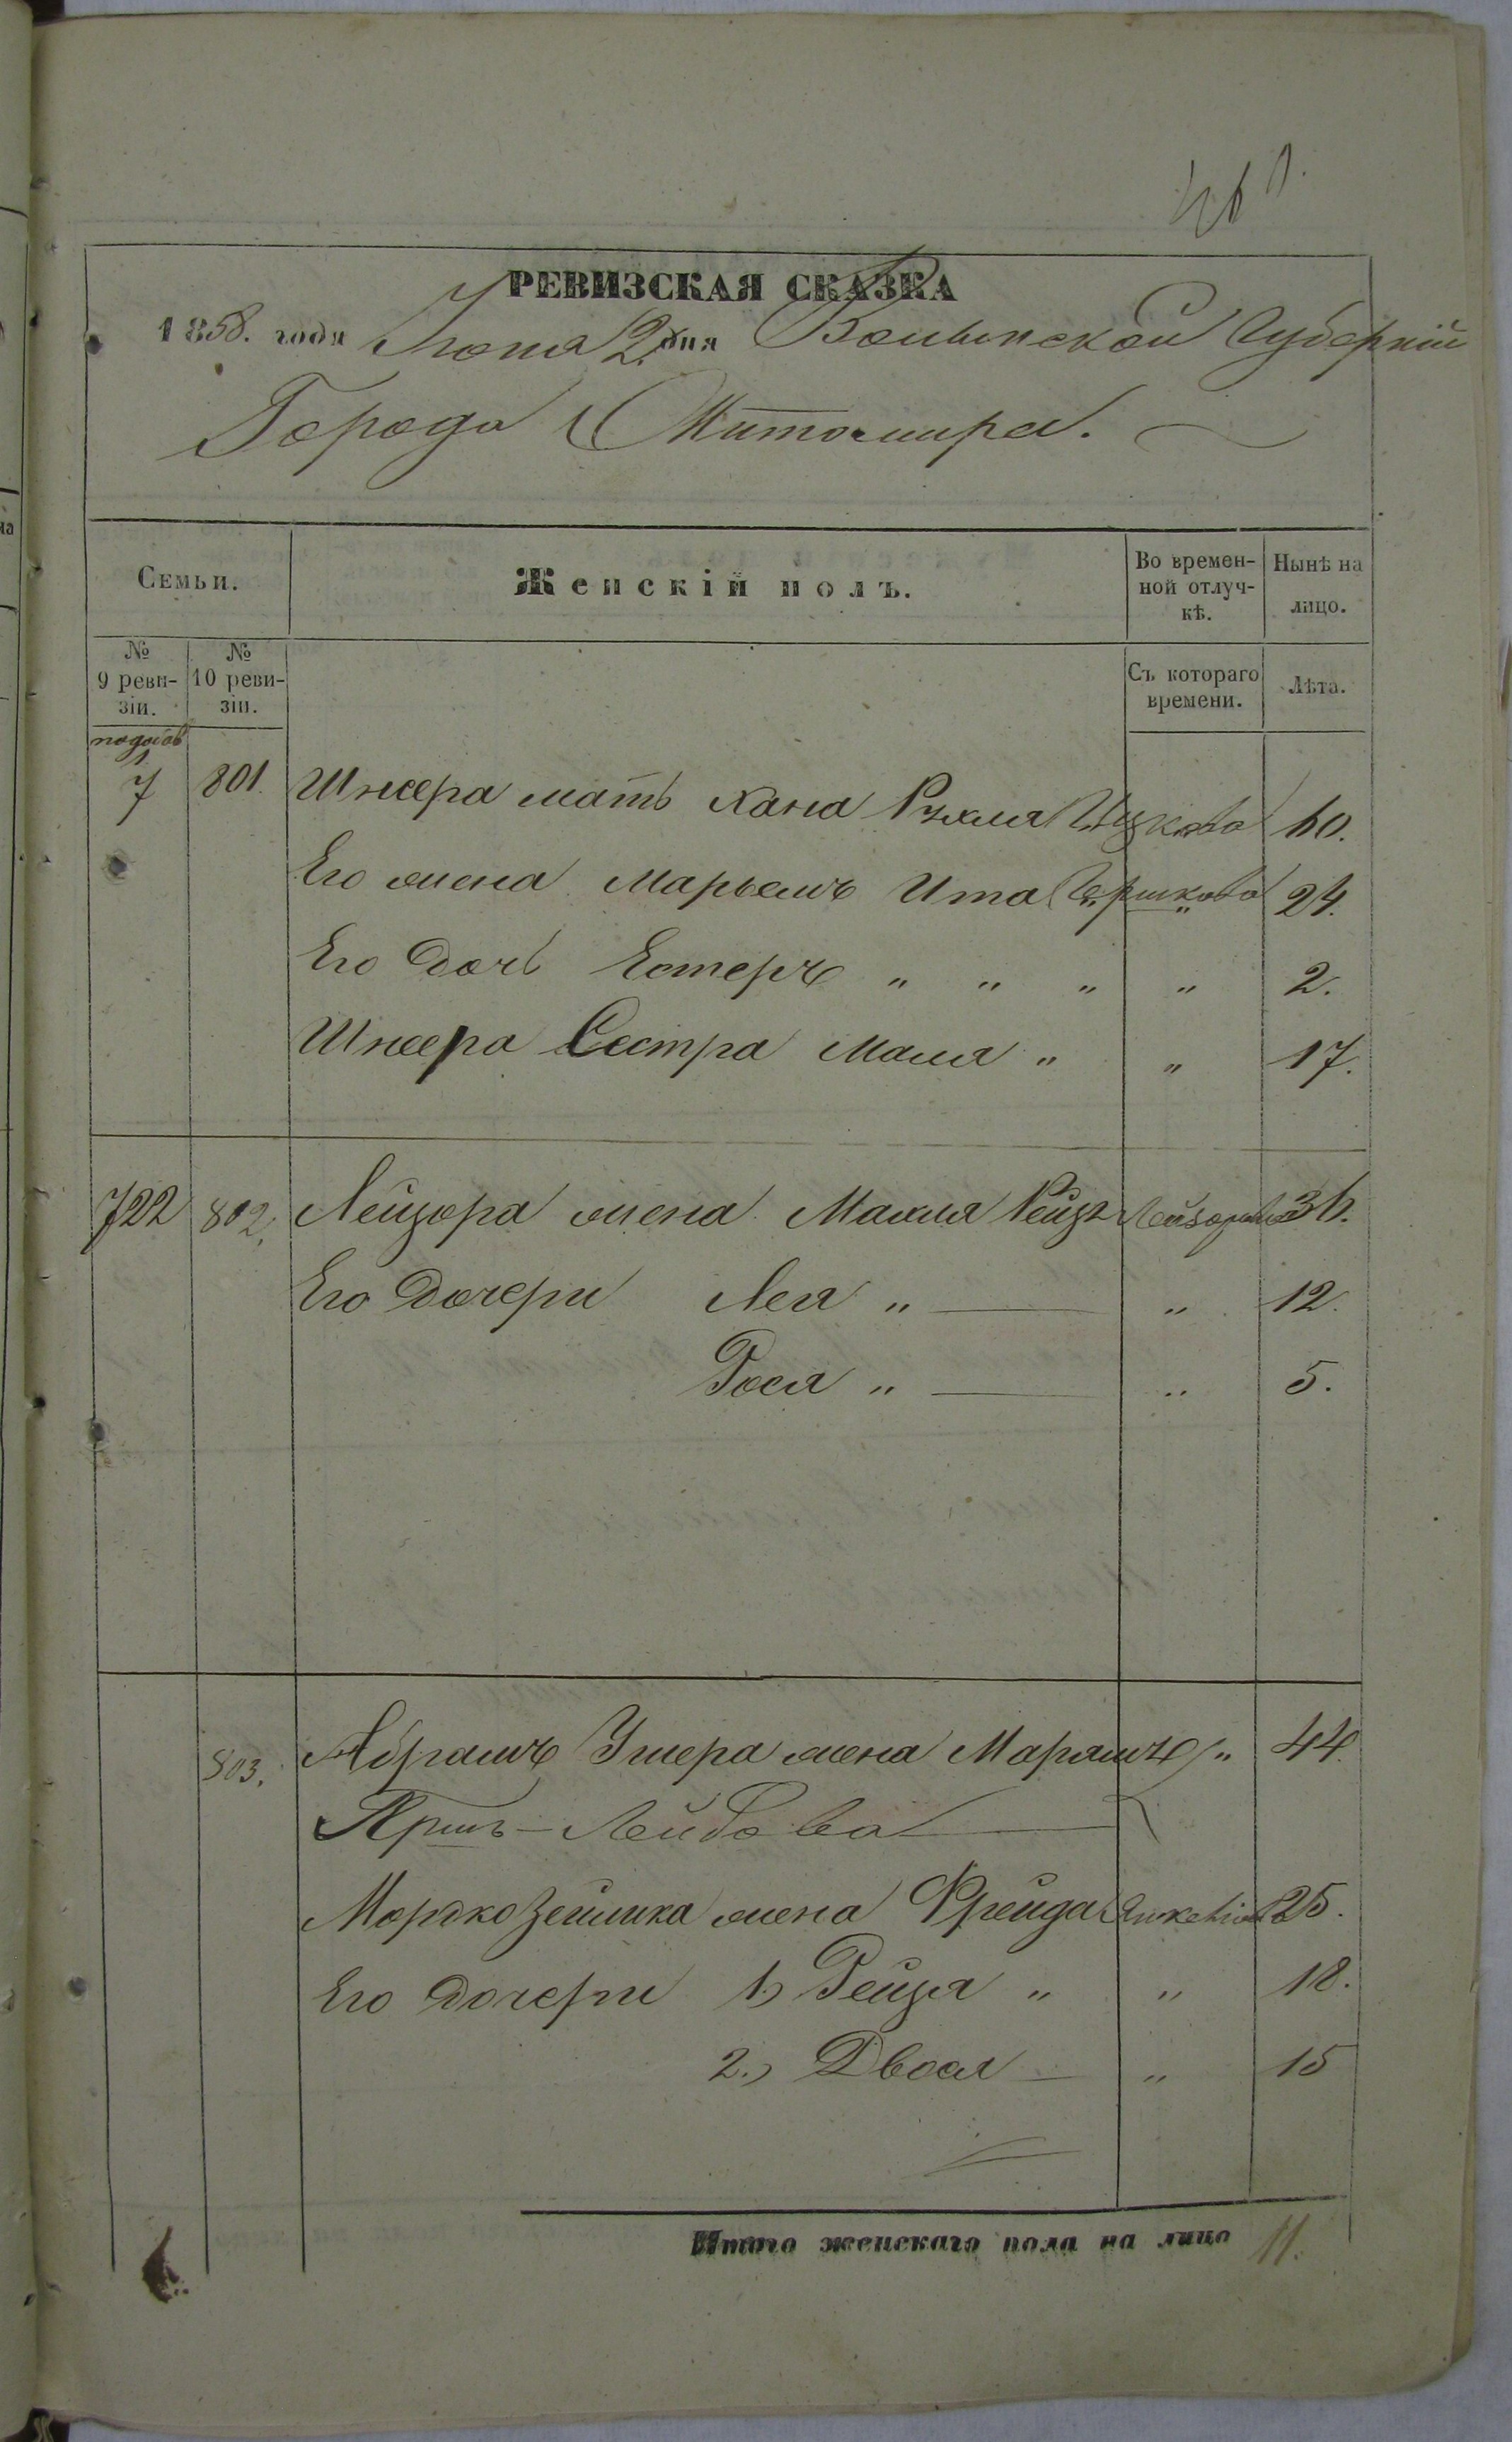 РЕВИЗСКАЯ СКАЗКА
1858. года Июня 2 дня Волынской Губерніи
Города Житомира.
Семьи.
Женскій полъ.
Во времен-
ной отлуч-
кѣ.
Нынѣ на
лицо.
№
9 реви-
зіи.
№
10 реви-
зіи.
Съ котораго
времени.
Лѣта.
7 801. Шнеера мать Хана Рухля Ицкова 60.
Его жена Марьемъ Ита Гершкова " 24.
Его дочь Естеръ " " " " 2.
Шнеера Сестра Маля " " 17.
722 802. Лейзора жена Махля Рейзя Лейзорова 36.
Его Дочери Лея " — " 12.
Рося " — " 5.
803. Абрамъ Ушера жена Марямъ " 44.
Яршъ-Лейбова
Мордко Зейлика жена Фрейда 25.
Его дочери 1) Рейзя " " 18.
2.) Двося — " 15
Итого женскаго пола на лицо 11.